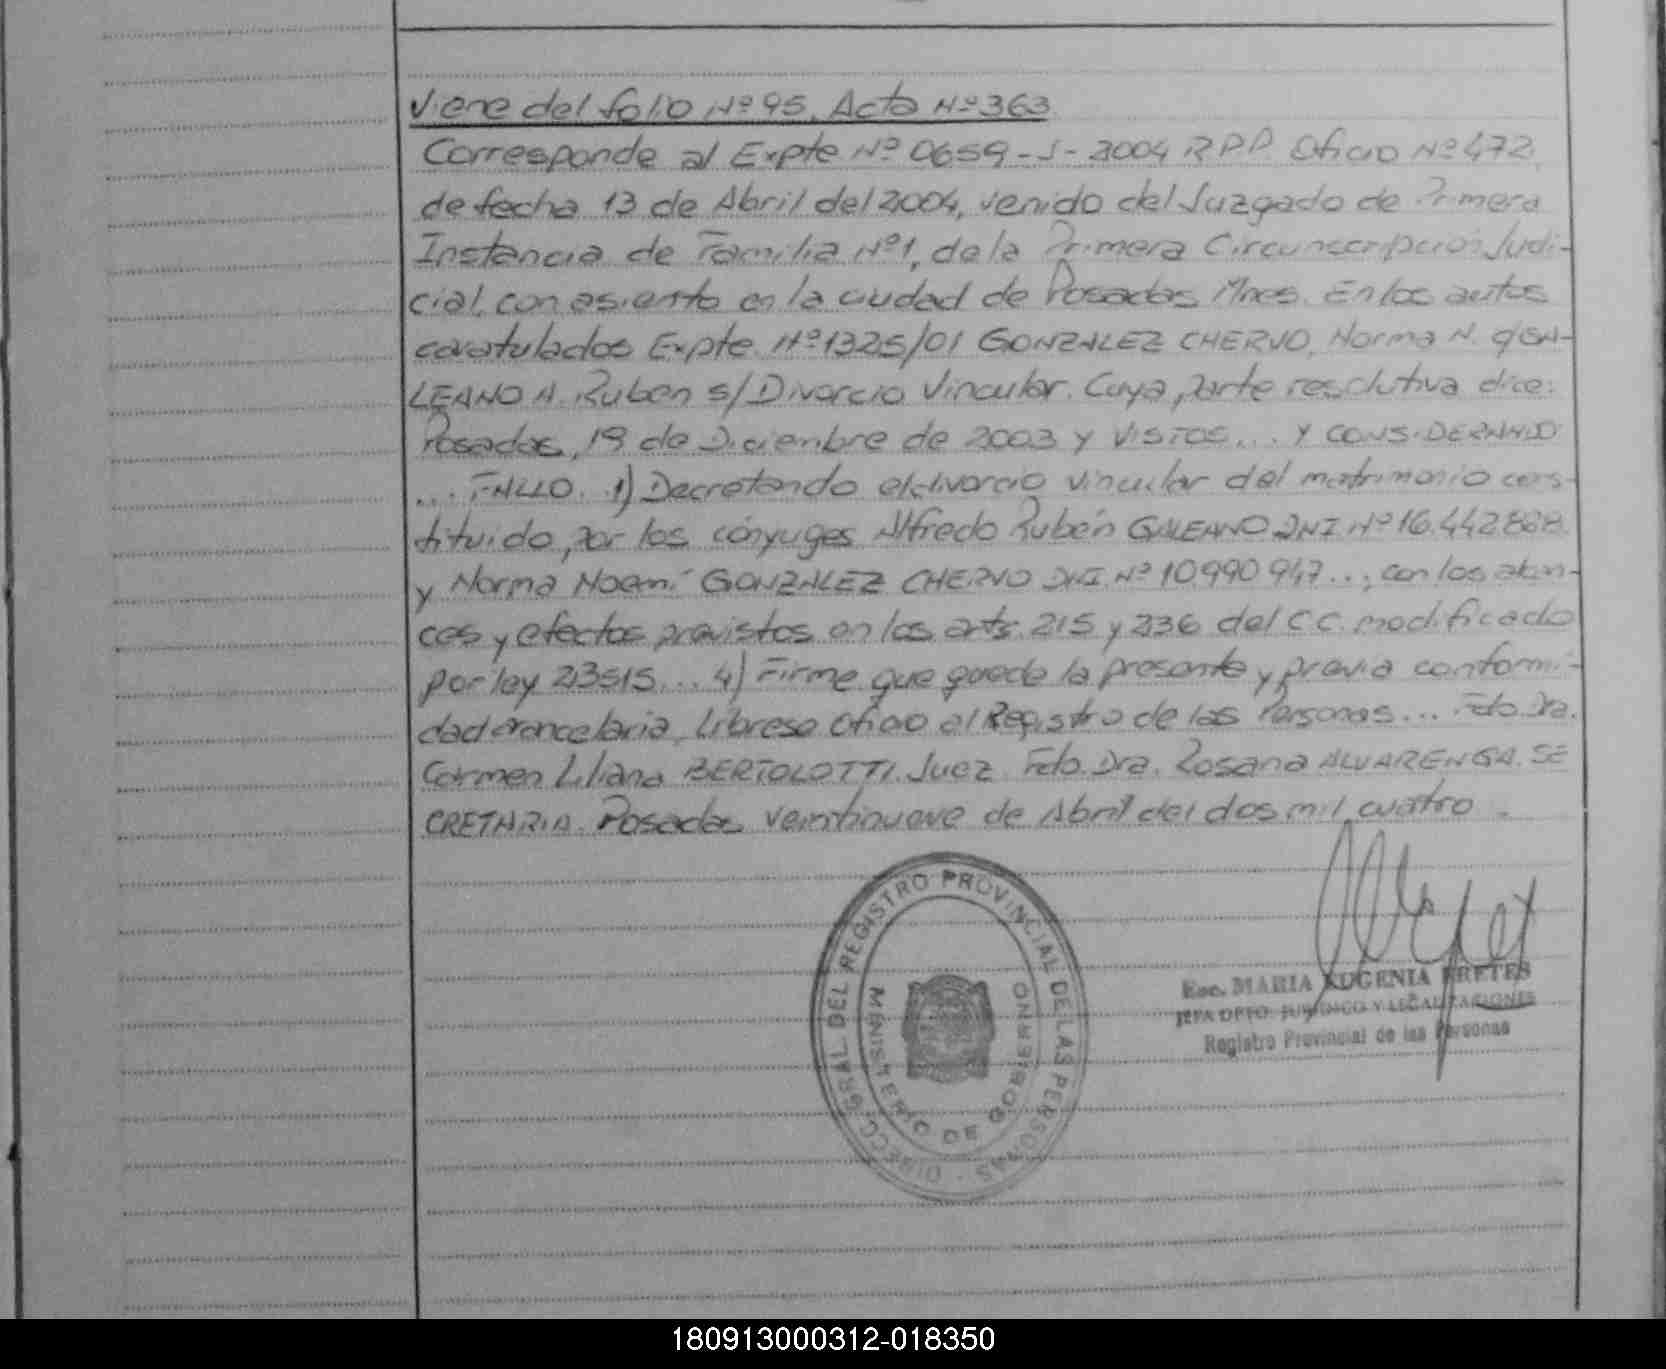 Viene del folio Nº 95, Acta Nº 363
Corresponde al Expte Nº 0659-J-2004 RPP. Oficio Nº 472,
de fecha 13 de Abril del 2004, venido del Juzgado de Primera
Instancia de Familia Nº 1, de la Primera Circunscripción Judi-
cial, con asiento en la ciudad de Posadas Mnes. En los autos
caratulados Expte. Nº 1325/01 GONZALEZ CHERVO, Norma N. y GA-
LEANO A. Ruben s/ Divorcio Vincular. Cuya, parte resolutiva dice:
Posadas, 19 de Diciembre de 2003 y VISTOS... Y CONSIDERANDO
... FALLO. 1) Decretando el divorcio vincular del matrimonio cons-
tituido, por los cónyuges Alfredo Rubén GALEANO DNI Nº 16.442888
y Norma Noemí GONZALEZ CHERVO DNI. Nº 10.990947..., con los alcan-
ces y efectos previstos en los arts. 215 y 236 del C.C. modificado
por ley 23515... 4) Firme que quede la presente y previa conformi-
dad arancelaria, Librese Oficio al Registro de las Personas... Fdo. Dra.
Carmen Liliana BERTOLOTTI. Juez. Fdo. Dra. Rosana ALVARENGA. SE
CRETARIA. Posadas veintinueve de Abril del dos mil cuatro.
DIRECC. GRAL. DEL REGISTRO PROVINCIAL DE LAS PERSONAS
MINISTERIO DE GOBIERNO
Esc. MARIA EUGENIA FRETES
JEFA DPTO. JURIDICO Y LEGALIZACIONES
Registro Provincial de las Personas
180913000312-018350